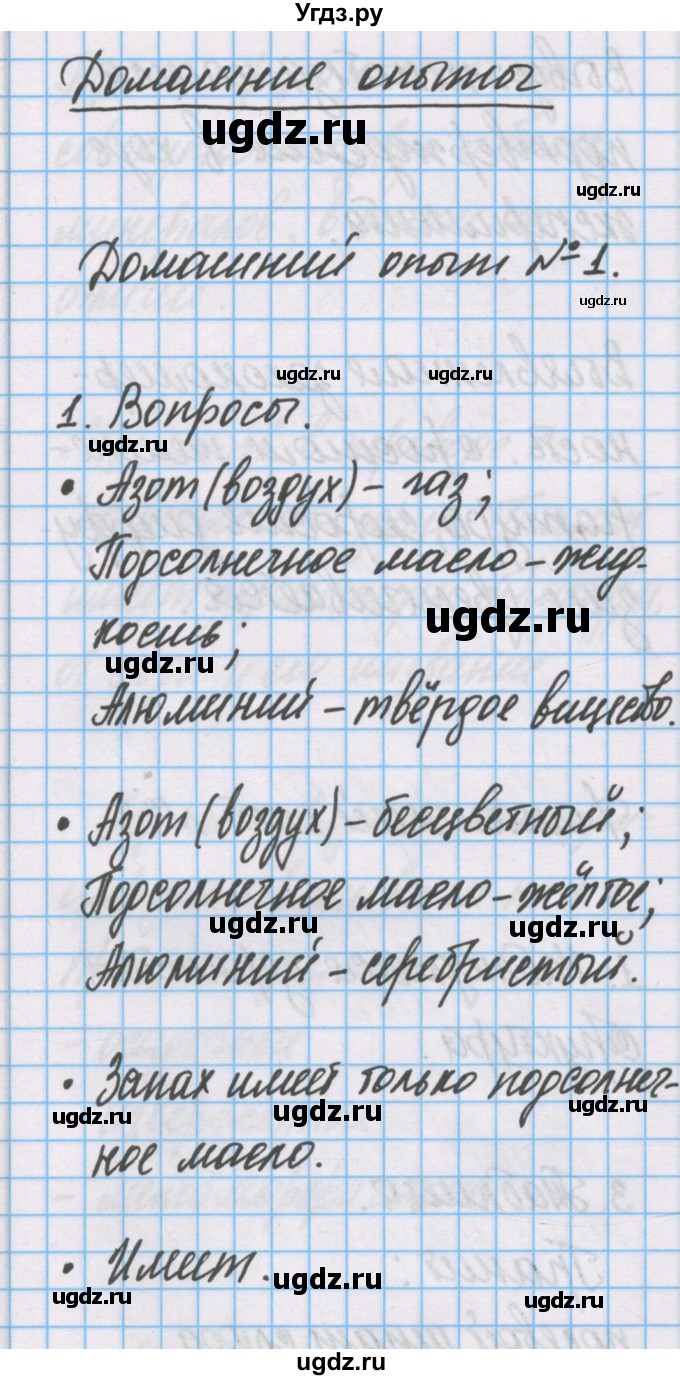 Угдз.ру
Домашние опыты
ugdz.ru
ugdz.ru
Домашний опыт №1.
ugdz.ru
ugdz.ru ugdz.ru
1. Вопросы.
ugdz.ru
• Азот (воздух) – газ;
Подсолнечное масло – жид-
ugdz.ru
кость;
ugdz.ru
Алюминий – твёрдое вищество.
• Азот (воздух) – бесцветный;
Подсолнечное масло – жёлтое;
ugdz.ru ugdz.ru
Алюминий – серебристый.
• Запах имеет только подсолнеч-
ugdz.ru ugdz.ru ugdz.ru
ное масло.
• Имеет.
ugdz.ru ugdz.ru ugdz.ru
ugdz.ru